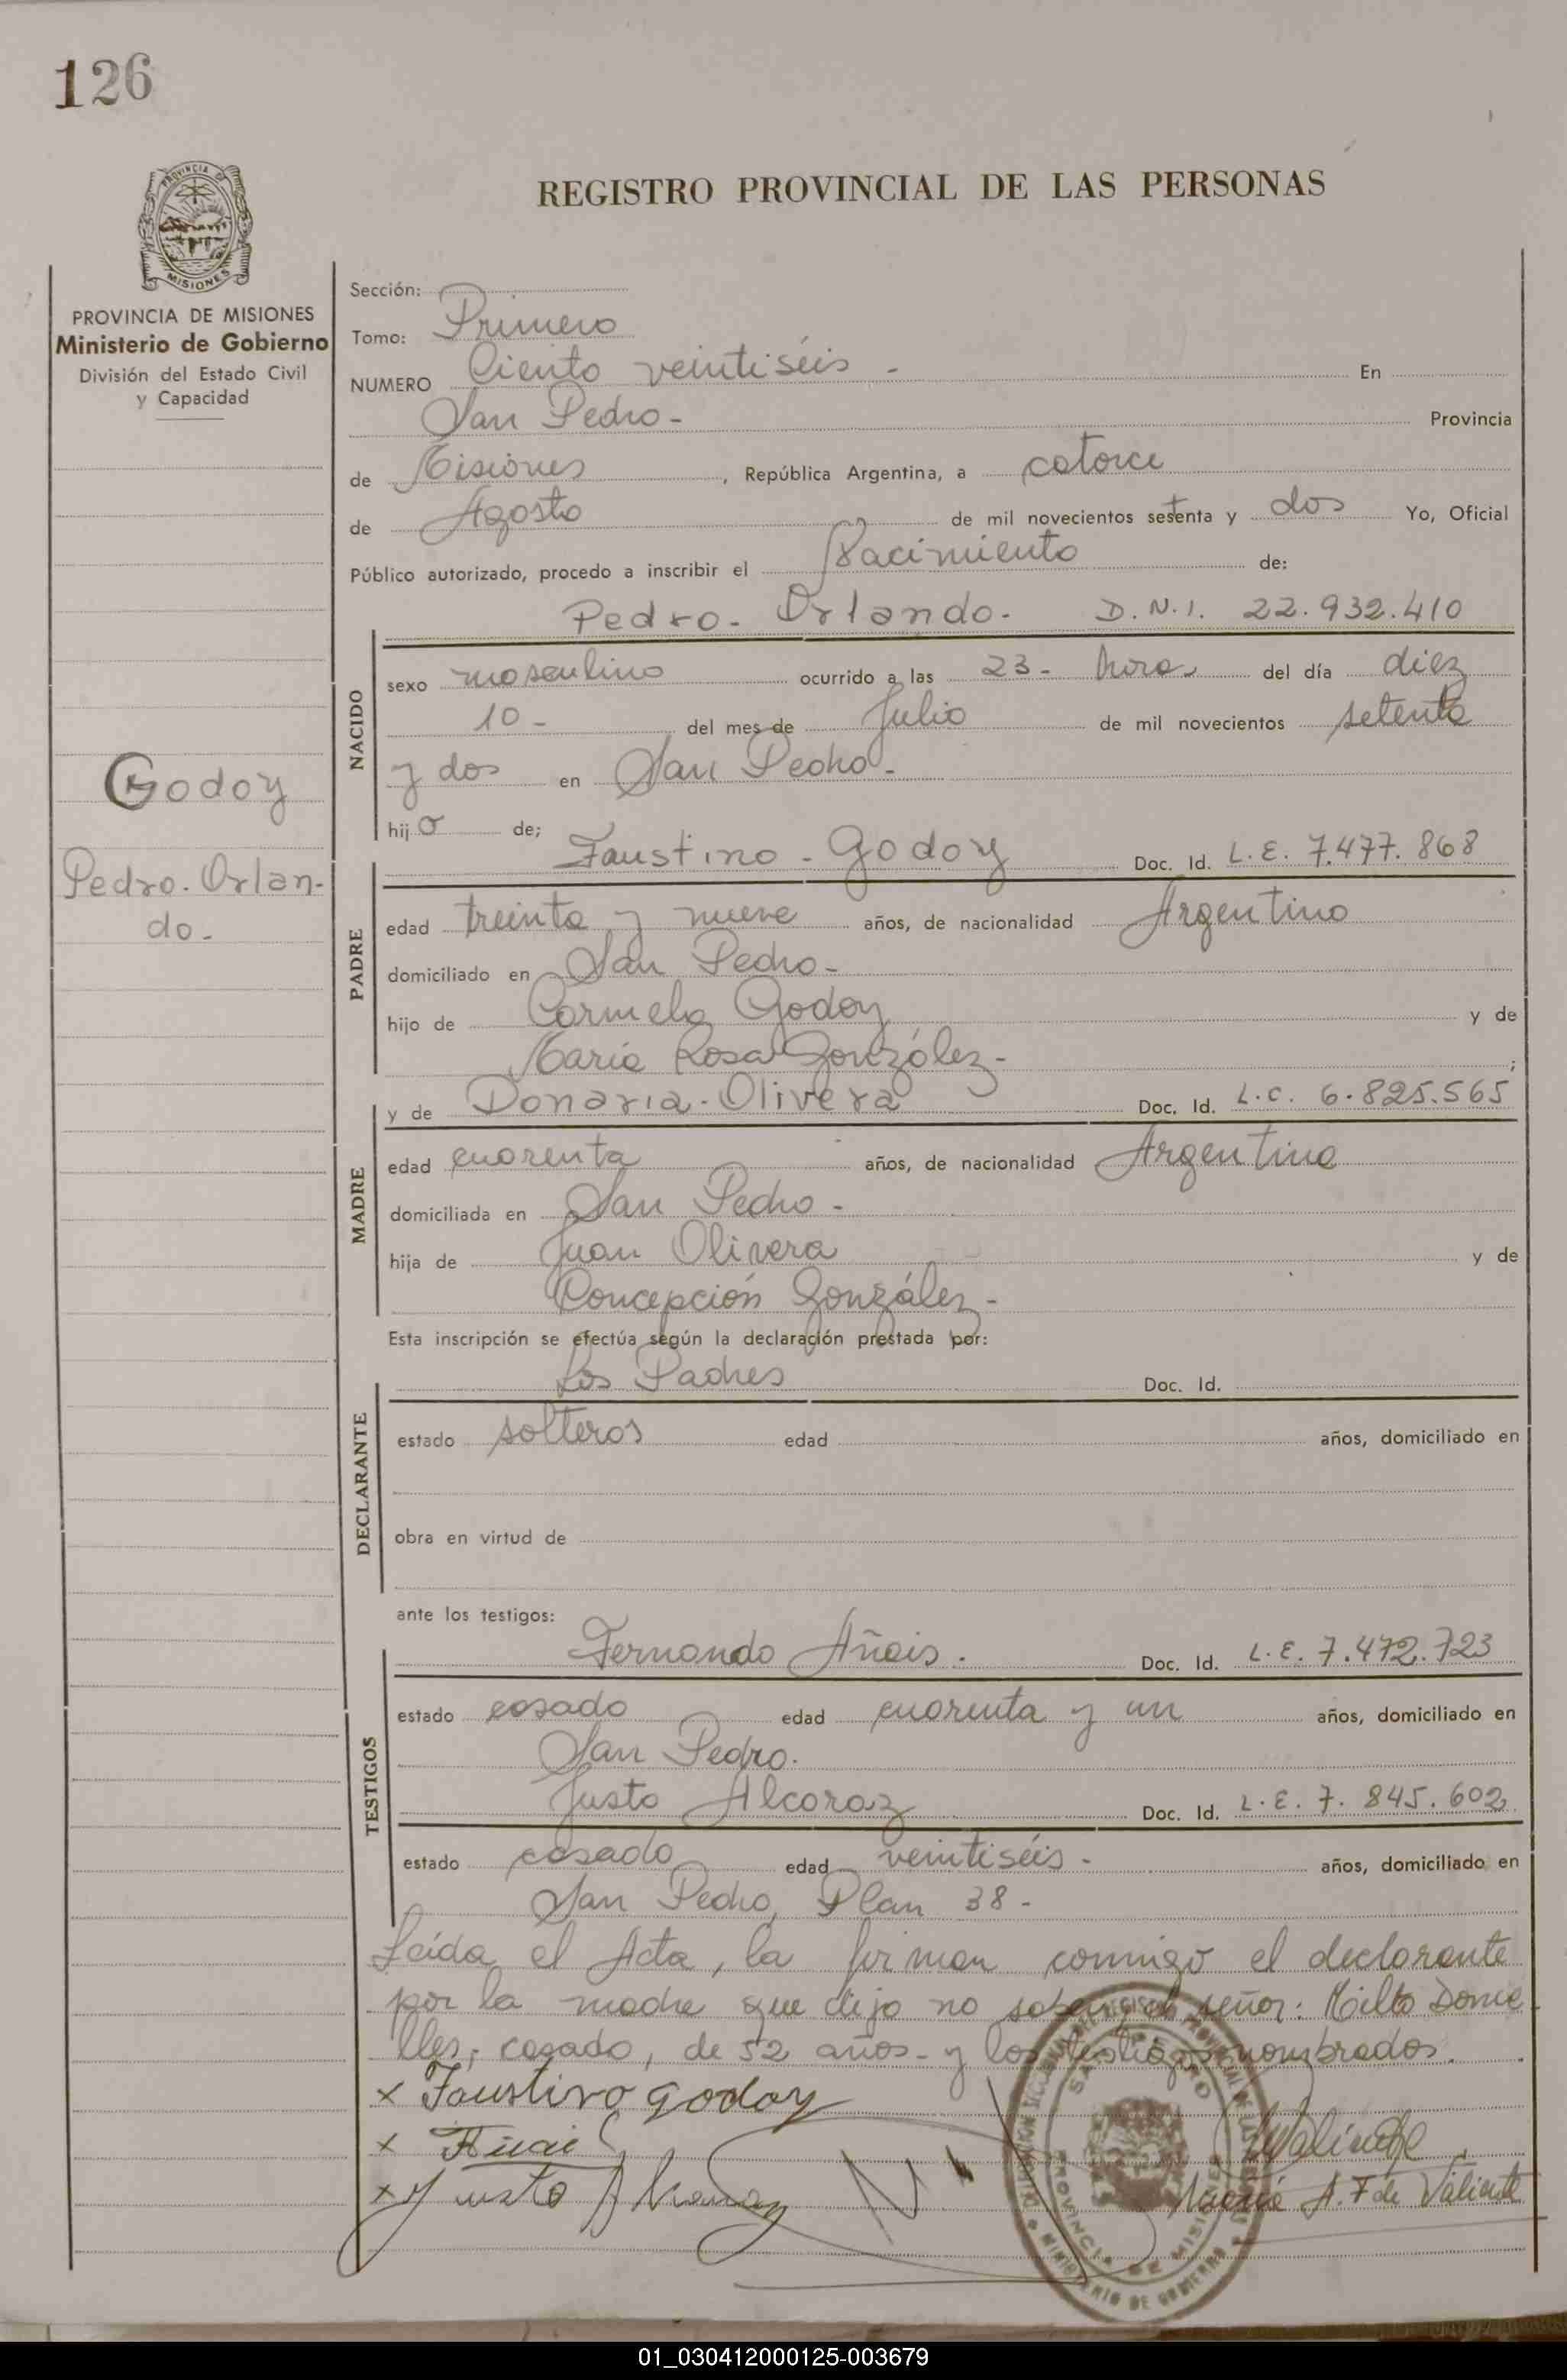 126
PROVINCIA DE
MISIONES
PROVINCIA DE MISIONES
Ministerio de Gobierno
División del Estado Civil
y Capacidad
Godoy
Pedro. Orlan-
do.-
REGISTRO PROVINCIAL DE LAS PERSONAS
Sección:
Tomo: Primero
NUMERO Ciento veintiséis - En
San Pedro- Provincia
de Misiones, República Argentina, a catorce
de Agosto de mil novecientos setenta y dos Yo, Oficial
Público autorizado, procedo a inscribir el Nacimiento de:
Pedro- Orlando- D.N.I. 22.932.410
NACIDO
sexo masculino ocurrido a las 23- hora, del día diez
10- del mes de Julio de mil novecientos setenta
y dos en San Pedro-
hijo de; Faustino - Godoy Doc. Id. L.E. 7.477.868
PADRE
edad treinta y nueve años, de nacionalidad Argentino
domiciliado en San Pedro-
hijo de Carmelo Godoy y de
María Rosa González- ;
y de Donaria-Olivera Doc. Id. L.C. 6.825.565
MADRE
edad cuarenta años, de nacionalidad Argentina
domiciliada en San Pedro-
hija de Juan Olivera y de
Concepción González-
Esta inscripción se efectúa según la declaración prestada por:
Los Padres Doc. Id.
DECLARANTE
estado solteros edad años, domiciliado en
obra en virtud de
ante los testigos:
Fernando Añais. Doc. Id. L.E. 7.472.723
TESTIGOS
estado casado edad cuarenta y un años, domiciliado en
San Pedro.
Justo Alcaraz Doc. Id. L.E. 7.845.602
estado casado edad veintiséis- años, domiciliado en
San Pedro, Plan 38-
Leída el Acta, la firman conmigo el declarante
por la madre que dijo no saber, el señor: Milto Dorne
lles, casado, de 52 años- y los testigos nombrados.
x Faustino Godoy
x
x Justo Alcaraz
A. F de Valiente
PROVINCIA DE MISIONES
MINISTERIO DE GOBIERNO
01_030412000125-003679